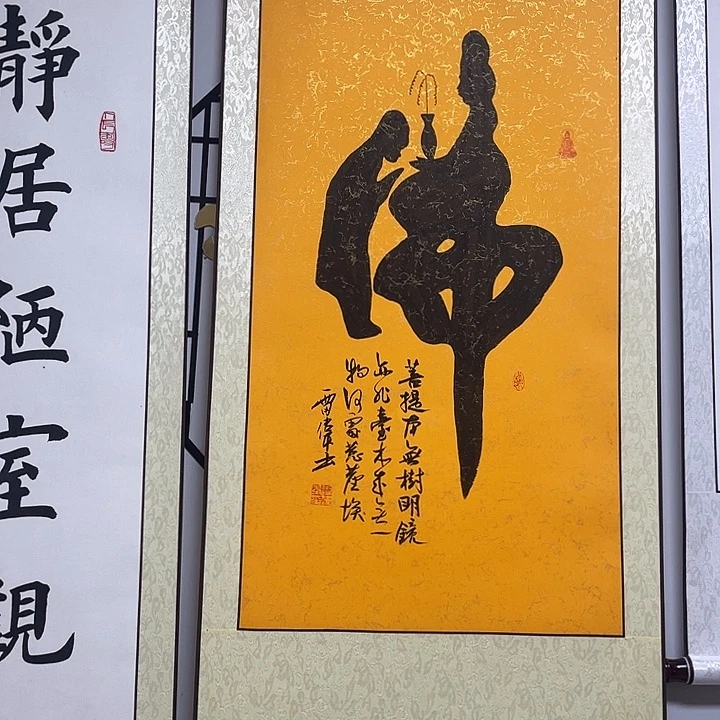 佛
菩提本無樹明鏡
亦非臺本來無一
物何處惹塵埃
雷偉
靜居陋室觀